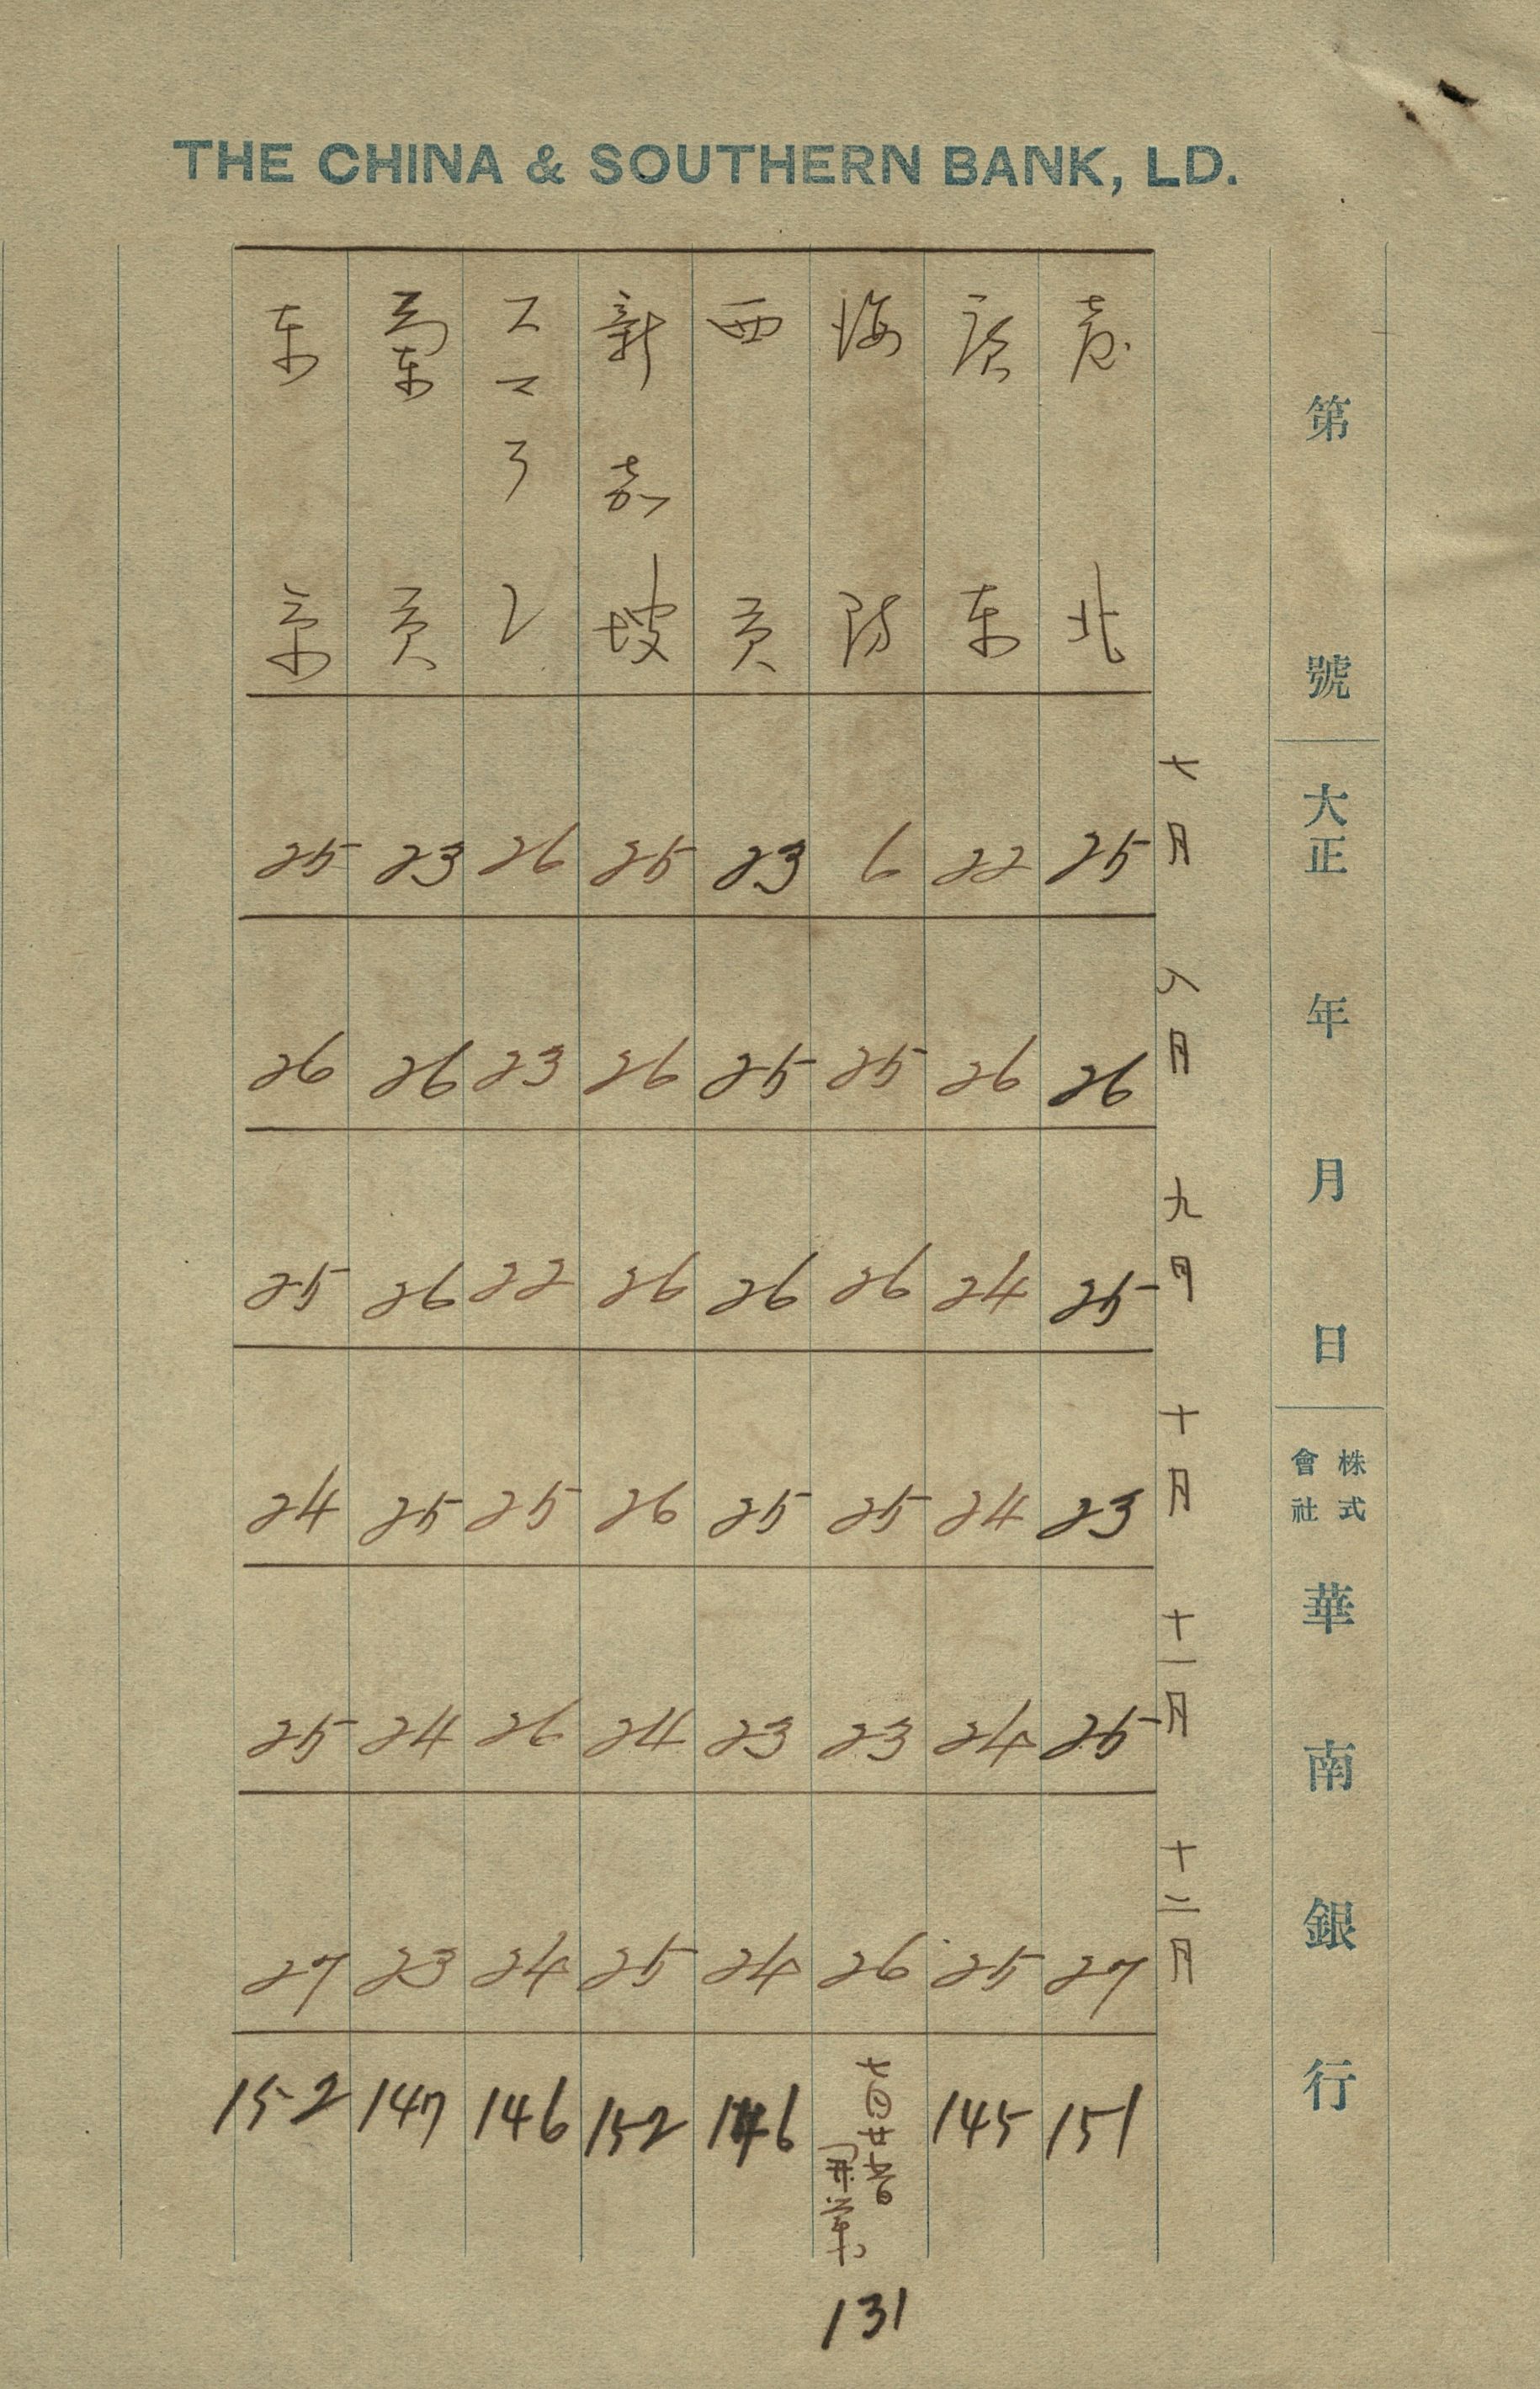 THE CHINA & SOUTHERN BANK, LD.
第 號 大正 年 月 日 株式會社 華南銀行
七月 八月 九月 十月 十一月 十二月
臺北 25 26 25 23 25 27 151
廣東 22 26 24 24 24 25 145
海防 6 25 26 25 23 26 七月廿六日開業 131
西貢 23 25 26 25 23 24 146
新嘉坡 25 26 26 26 24 25 152
スマラン 26 23 22 25 26 24 146
蘭貢 23 26 26 25 24 23 147
東京 25 26 25 24 25 27 152